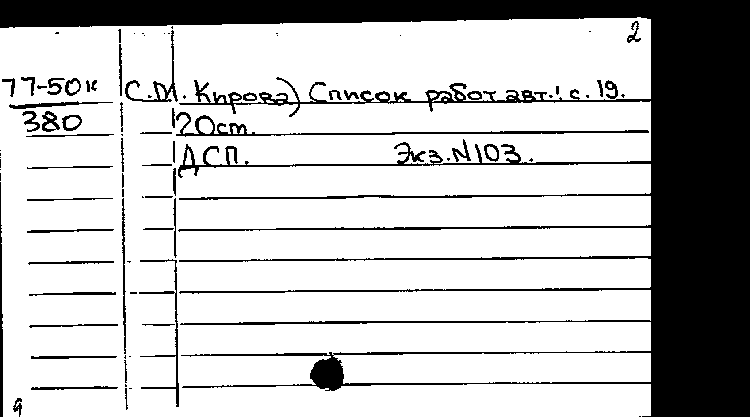 2
77-50к С.М. Кирова) Список работ авт.: с. 19.
380 20см.
ДСП. Экз.N103.
9